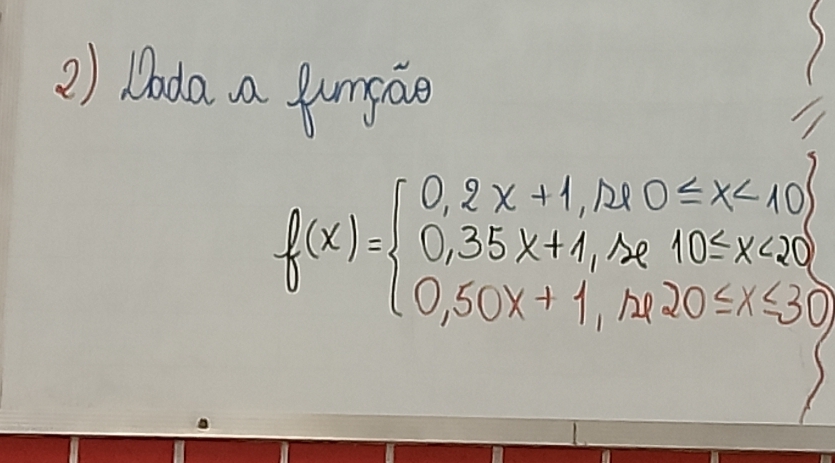 2) Dada a função
f(x) = { 0,2x + 1, se 0 ≤ x < 10
0,35x + 1, se 10 ≤ x < 20
0,50x + 1, se 20 ≤ x ≤ 30